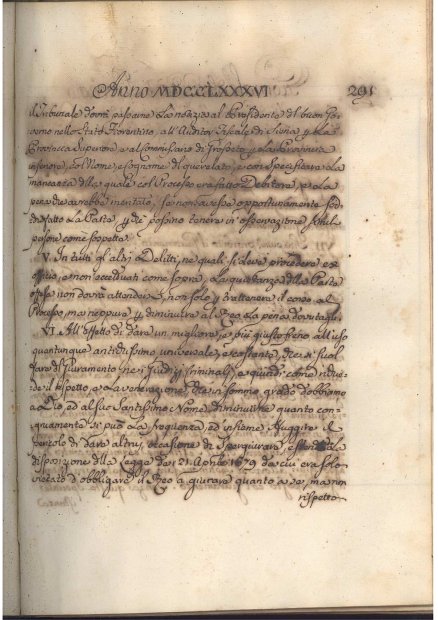 Anno MDCCLXXXVI 291
il Tribunale dovrà passarne la notizia al Presidente del buon Go-
verno nello Stato Fiorentino, all'Auditor Fiscale di Siena per la
Provincia Superiore e al Commissario di Grosseto per la Provincia
inferiore, col Nome, e Cognome del querelato, e con specificare la
mancanza della quale col Processo era fatto Debitore, e la
pena che avrebbe meritato, se non avesse opportunamente sod-
disfatto la Parte, perché possino tenere in osservazione simili
persone come sospette.
V. In tutti gl'altri Delitti, ne' quali si deve procedere ex
officio, e non eccettuati come sopra, la quietanza della Parte
offesa non dovrà attendersi, non solo per trattenere il corso al
Processo, ma neppure per diminuire al Reo la pena dovutagli.
VI. All'effetto di dare un migliore, e più giusto freno all'uso
quantunque antichissimo universale, e costante, che si fa di
dare il Giuramento nei Giudizj Criminali, e quindi come richie-
de il rispetto, e la venerazione, che in sommo grado dobbiamo
a Dio, ed al suo Santissimo Nome, diminuirne quanto con-
gruamente si può la frequenza, ed insieme fuggire il
pericolo di dare altrui occasione di spergiurare, estendendo la
disposizione della Legge de' 21 Aprile 1679 da cui era solo
vietato d'obbligare il Reo a giurare quanto a se, ma non
rispetto